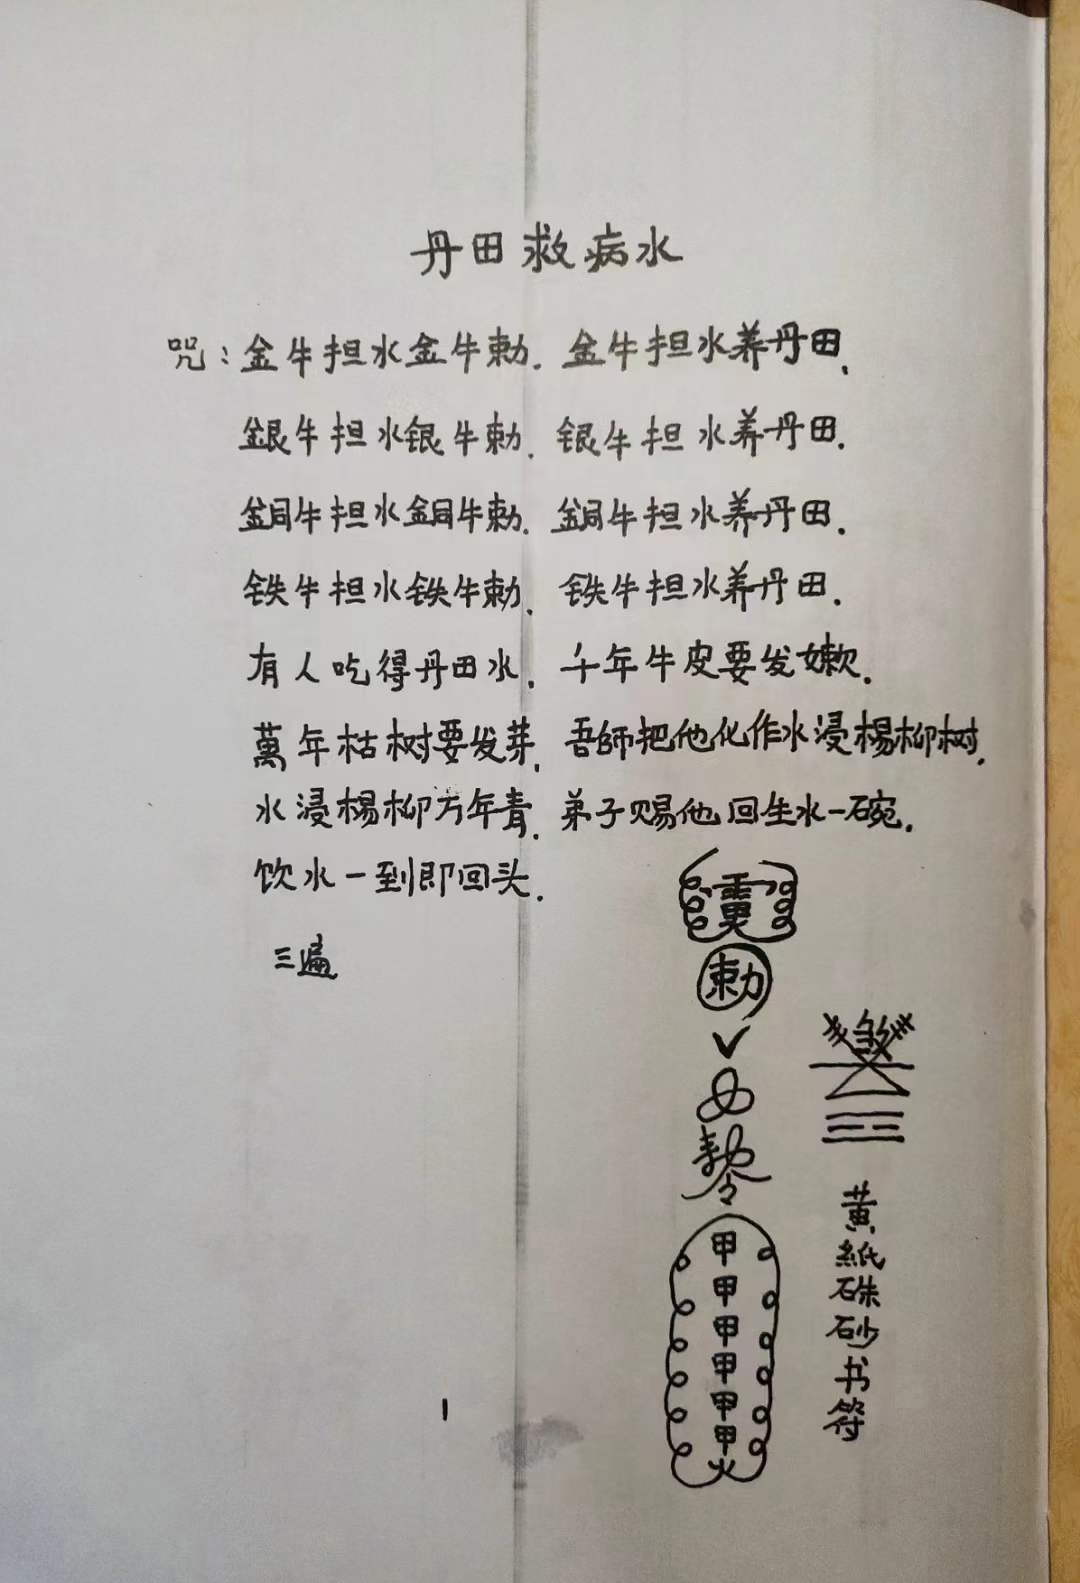 丹田救病水
咒：金牛担水金牛勅．金牛担水养丹田．
銀牛担水银牛勅．银牛担水养丹田．
銅牛担水銅牛勅．銅牛担水养丹田．
铁牛担水铁牛勅．铁牛担水养丹田．
有人吃得丹田水．千年牛皮要发嫩．
萬年枯树要发芽．吾師把他化作水浸楊柳树．
水浸楊柳万年青．弟子赐他回生水一碗．
饮水一到即回头．
三遍
勅
煞
甲
甲
甲
甲
甲
甲
火
黄紙硃砂书符
1